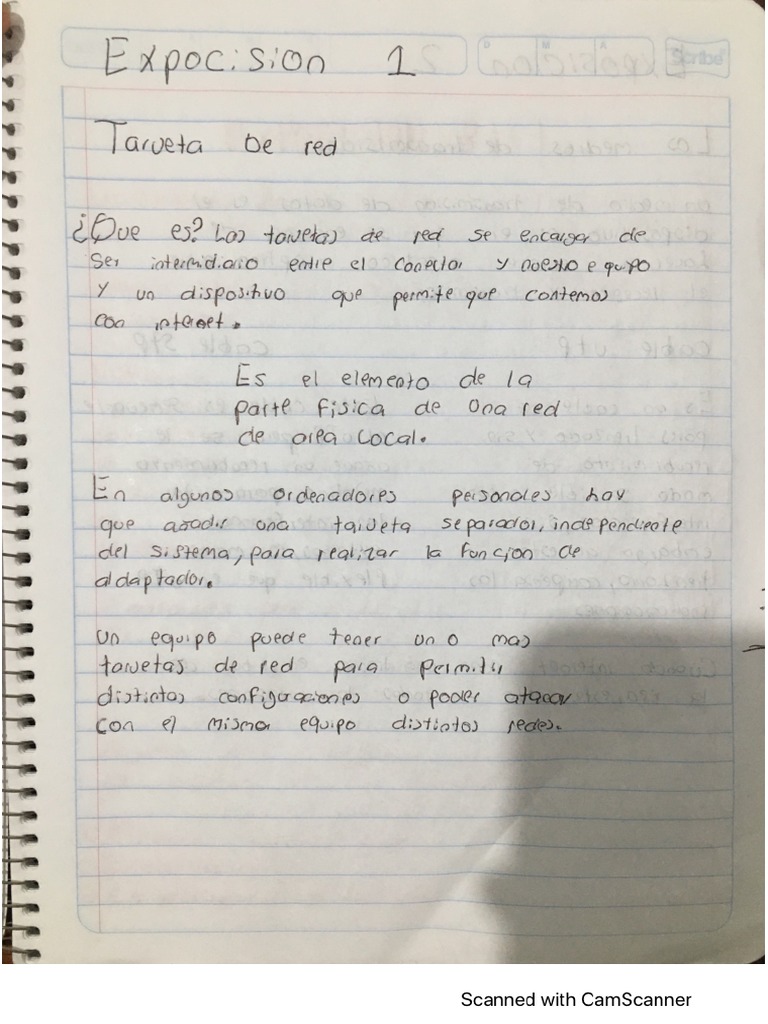 Expocision 1
Scribe
Tarueta De red
¿Que es? Las taruetas de red se encargar de
Ser intermidiario entre el Conector y nuestro equipo
Y un dispositivo que permite que contemos
con internet.
Es el elemento de la
parte fisica de una red
de area Local.
En algunos ordenadores personales hay
que añadir una tarueta separador, independiente
del sistema, para realizar la funcion de
aldaptador.
Un equipo puede tener un o mas
taruetas de red para Permitir
distintas configuraciones o poder atacar
con el misma equipo distintos redes.
Scanned with CamScanner